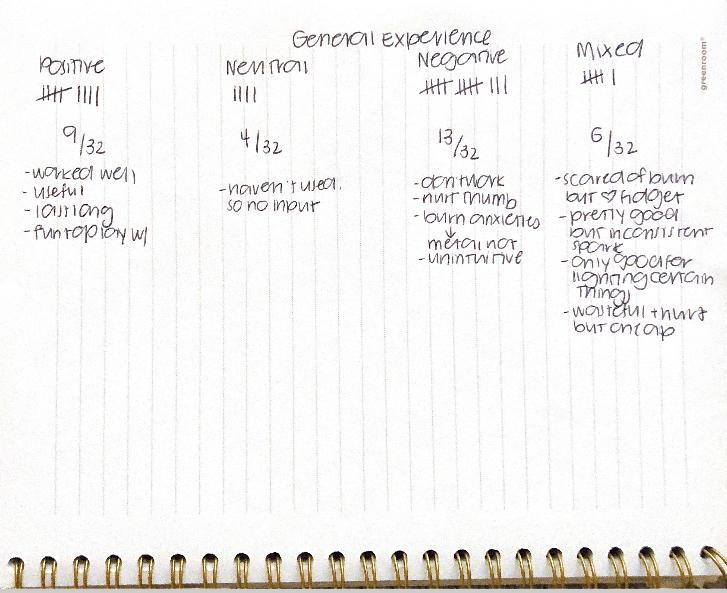 General Experience
Positive
9/32
- worked well
- useful
- last long
- fun to play w/
Neutral
4/32
- haven't used.
so no input
Negative
13/32
- don't work
- hurt thumb
- burn anxieties
↓
metal hot
- unintuitive
Mixed
6/32
- scared of burn
but ♡ fidget
- pretty good
but inconsistent
spark
- only good for
lighting certain
things
- wasteful + hurt
but cheap
greenroom®